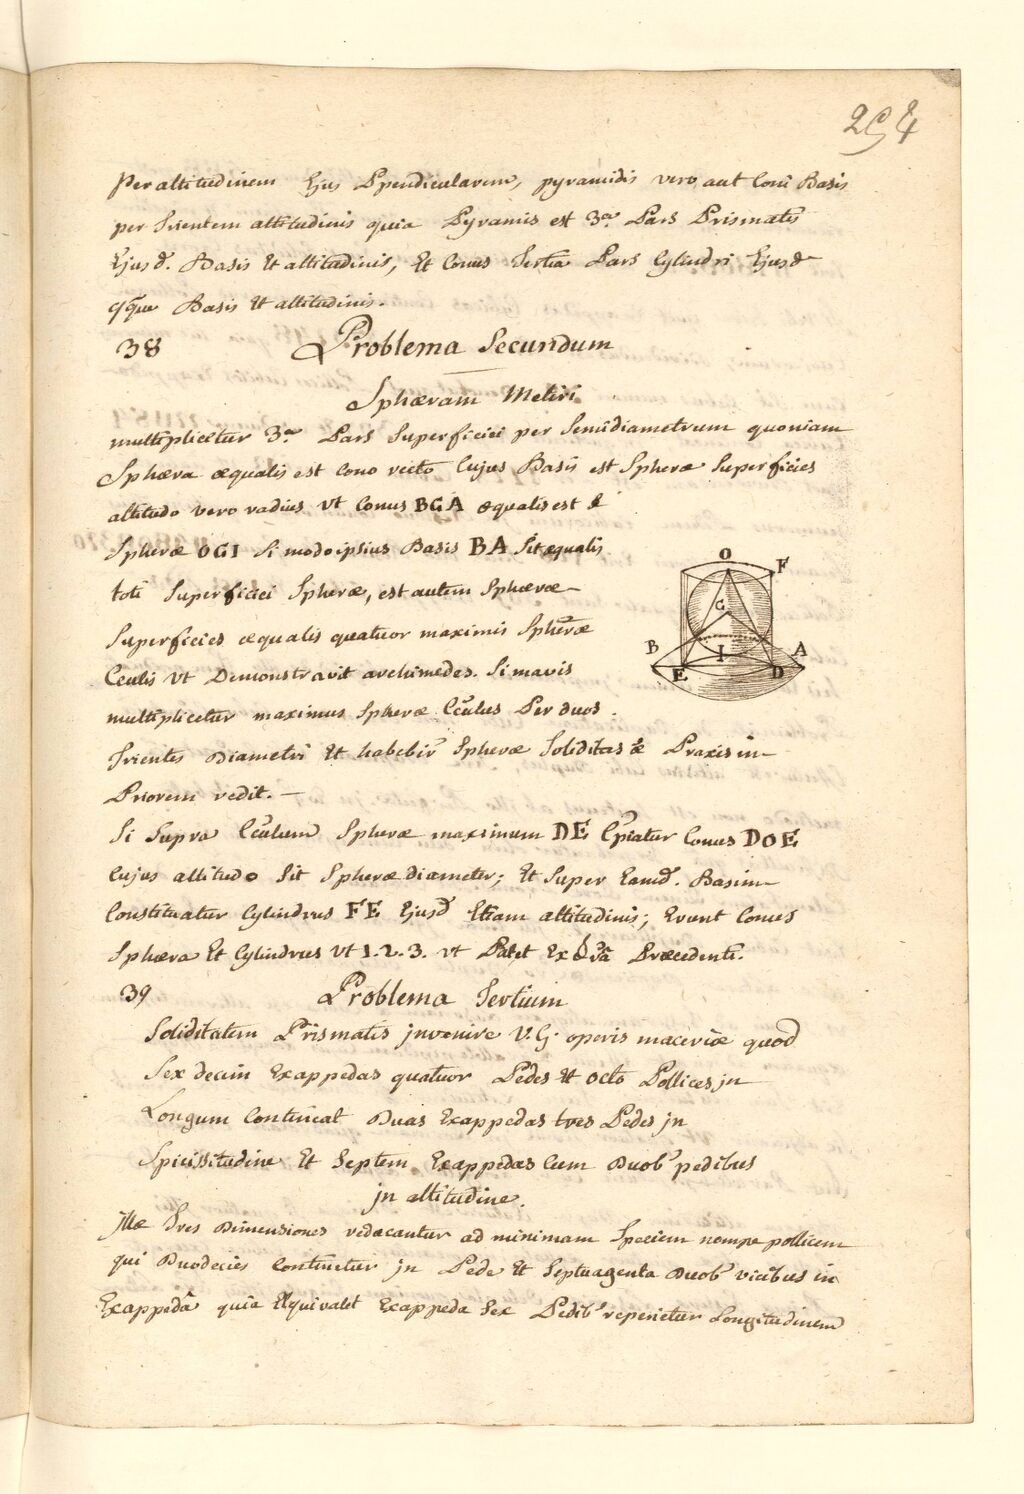 294
Per altitudinem Ejus Ppendicularem, pyramidis vero aut Coni Basis
per Trientem altitudinis quia Pyramis est 3.a Pars Prismatis
Ejusd. Basis Et altitudinis, Et Conus Tertia Pars Cylindri Ejusd
qque Basis Et altitudinis.
38 Problema Secundum
Sphæram Metiri
multiplicetur 3.a Pars Superficiei per Semidiametrum quoniam
Sphæra æqualis est Cono recto Cujus Basis est Spheræ Superficies
altitudo vero radius Vt Conus BGA æqualis est
Spheræ OGI Si modo ipsius Basis BA Sit æqualis
toti Superficiei Spheræ, est autem Sphæræ
Superficies æqualis quatuor maximis Spheræ
Cculis Vt Demonstravit archimedes. Si mavis
multiplicetur maximus Spheræ Cculus Per duos
Trientes Diametri Et habebir Spheræ Soliditas æ Praxis in
Priorem redit.
Si Supra Cculum Spheræ maximum DE Cpiatur Conus DOE
Cujus altitudo Sit Spheræ diameter; Et Super Eamd. Basim
Constituatur Cylindrus FE Ejusd Etiam altitudinis; Erunt Conus
Sphæra Et Cylindrus Vt 1. 2. 3. Vt Patet Ex Præcedenti.
O
F
G
B
A
I
E
D
39 Problema Tertium
Soliditatem Prismatis jnvenire V. G. operis maceriæ quod
Sex decim Exappedas quatuor Pedes Et octo Pollices jn
Longum Contineat Duas Exappedas tres Pedes jn
Spicissitudine Et Septem Exappedas Cum Duob' pedibus
jn altitudine.
jllæ Tres Dimensiones redacantur ad minimam Speciem nempe pollicem
qui Duodecies Continetur jn Pede Et Septuagenta Duob' vicibus in
Exappeda quia Equivalet Exappeda Sex Pedib' reperietur Longitudinem